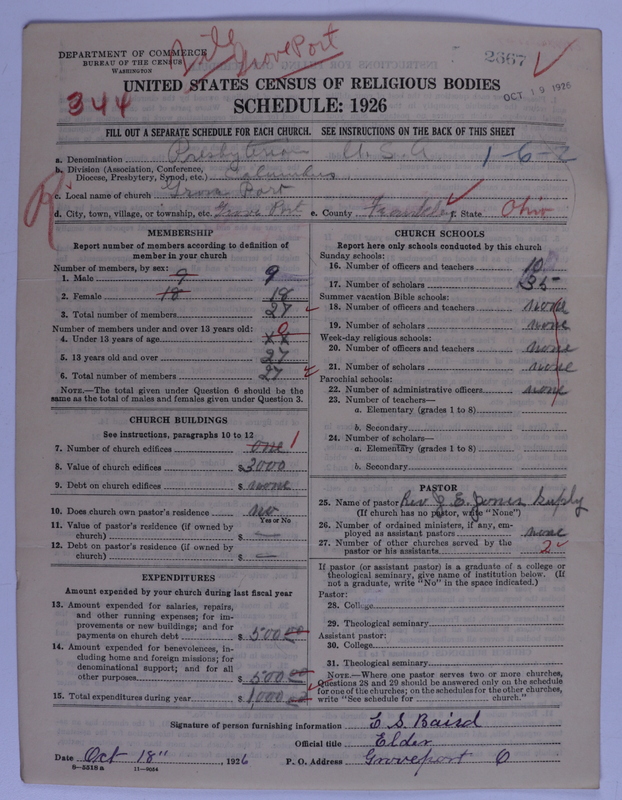 Groveport
DEPARTMENT OF COMMERCE
BUREAU OF THE CENSUS
WASHINGTON
2667
OCT 19 1926
UNITED STATES CENSUS OF RELIGIOUS BODIES
344
SCHEDULE: 1926
FILL OUT A SEPARATE SCHEDULE FOR EACH CHURCH. SEE INSTRUCTIONS ON THE BACK OF THIS SHEET
a. Denomination Presbyterian U.S.A 1-6-2
b. Division (Association, Conference,
Diocese, Presbytery, Synod, etc.) Columbus
c. Local name of church Grove Port
d. City, town, village, or township, etc. Grove Port e. County Franklin f. State Ohio
MEMBERSHIP
Report number of members according to definition of
member in your church
Number of members, by sex:
1. Male 9 9
2. Female 18 18
3. Total number of members 27
Number of members under and over 13 years old:
4. Under 13 years of age 0 xx
5. 13 years old and over 27
6. Total number of members 27
NOTE.—The total given under Question 6 should be the
same as the total of males and females given under Question 3.
CHURCH BUILDINGS
See instructions, paragraphs 10 to 12
7. Number of church edifices one 1
8. Value of church edifices $3000
9. Debt on church edifices $ none
10. Does church own pastor's residence no
Yes or No
11. Value of pastor's residence (if owned by
church) $ —
12. Debt on pastor's residence (if owned by
church) $ —
EXPENDITURES
Amount expended by your church during last fiscal year
13. Amount expended for salaries, repairs,
and other running expenses; for im-
provements or new buildings; and for
payments on church debt $ 500 00
14. Amount expended for benevolences, in-
cluding home and foreign missions; for
denominational support; and for all
other purposes $ 500 00
15. Total expenditures during year $ 1000
CHURCH SCHOOLS
Report here only schools conducted by this church
Sunday schools:
16. Number of officers and teachers 10
17. Number of scholars 35
Summer vacation Bible schools:
18. Number of officers and teachers none
19. Number of scholars none
Week-day religious schools:
20. Number of officers and teachers none
21. Number of scholars none
Parochial schools:
22. Number of administrative officers none
23. Number of teachers—
a. Elementary (grades 1 to 8)
b. Secondary
24. Number of scholars—
a. Elementary (grades 1 to 8)
b. Secondary
PASTOR
25. Name of pastor Rev. J. E. Jones supply
(If church has no pastor, write "None")
26. Number of ordained ministers, if any, em-
ployed as assistant pastors none
27. Number of other churches served by the
pastor or his assistants 2
If pastor (or assistant pastor) is a graduate of a college or
theological seminary, give name of institution below. (If
not a graduate, write "No" in the space indicated.)
Pastor:
28. College
29. Theological seminary
Assistant pastor:
30. College
31. Theological seminary
NOTE.—Where one pastor serves two or more churches,
Questions 28 and 29 should be answered only on the schedule
for one of the churches; on the schedules for the other churches,
write "See schedule for church."
Signature of person furnishing information E S Baird
Official title Elder
Date Oct 18", 1926 P. O. Address Groveport O
8-5518 a 11-9034